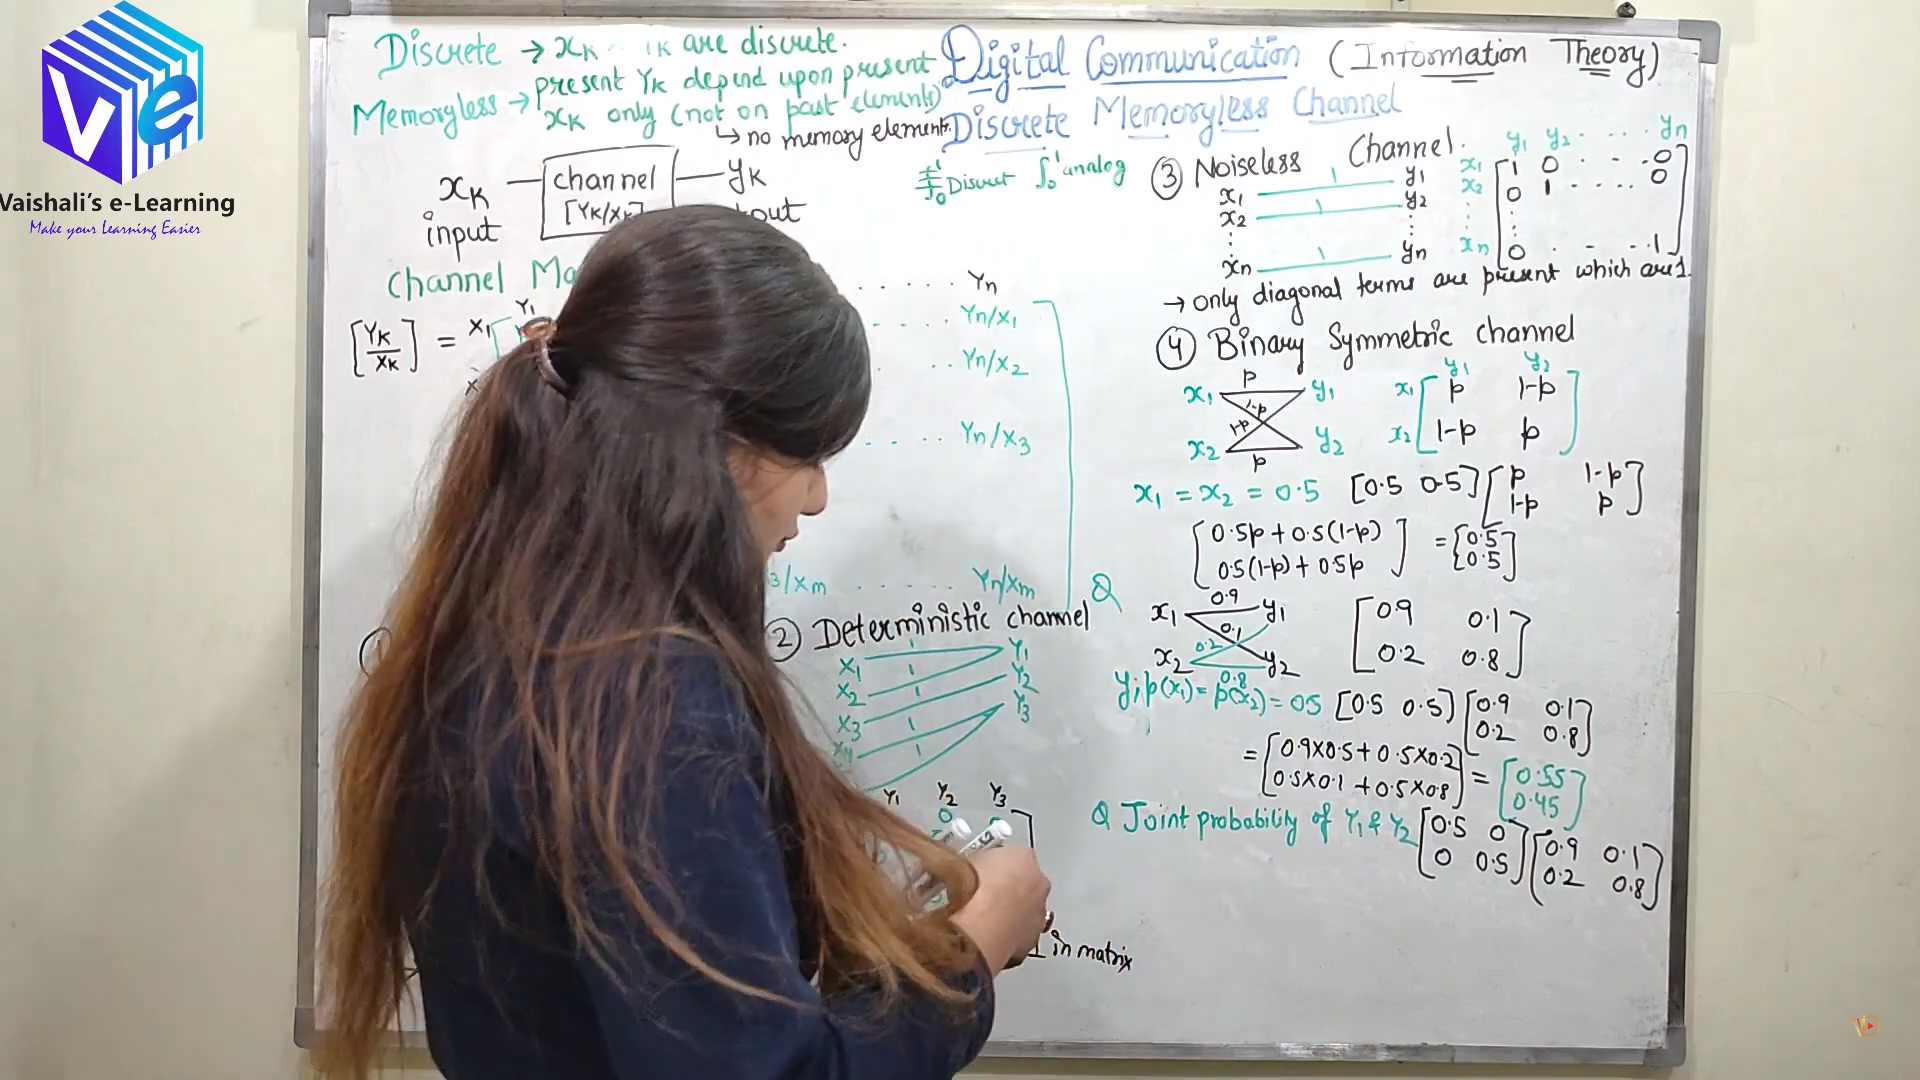 Vaishali's e-Learning
Make your Learning Easier
Digital Communication (Information Theory)
Discrete Memoryless Channel
Discrete → xK are discrete.
Memoryless → present YK depend upon present
xK only (not on past elements)
↳ no memory element.
xK — channel — yK
[YK/XK]
input
Discret
analog
Channel
Yn
[YK/XK] = X1
Y1
Yn/X1
Yn/X2
Yn/X3
3/Xm Yn/Xm
② Deterministic channel
X1 1 Y1
X2 1 Y2
X3 1 Y3
X4 1
Y1 Y2 Y3
0
1 in matrix
③ Noiseless Channel.
x1 1 y1
x2 1 y2
xn 1 yn
y1 y2 . . . . yn
x1 1 0 . . . 0
x2 0 1 . . . . 0
xn 0 . - . . 1
→ only diagonal terms are present which are 1.
④ Binary Symmetric channel
x1 p y1
1-p
1-p
x2 p y2
y1 y2
x1 [p 1-p]
x2 [1-p p]
x1 = x2 = 0.5 [0.5 0.5] [p 1-p
1-p p]
[0.5p + 0.5(1-p)
0.5(1-p) + 0.5p] = [0.5
0.5]
Q
x1 0.9 y1
0.1
0.2
x2 0.8 y2
[0.9 0.1
0.2 0.8]
y; p(x1) = p(x2) = 0.5 [0.5 0.5] [0.9 0.1
0.2 0.8]
= [0.9×0.5 + 0.5×0.2
0.5×0.1 + 0.5×0.8] = [0.55
0.45]
Q Joint probability of Y1 & Y2 [0.5 0
0 0.5] [0.9 0.1
0.2 0.8]